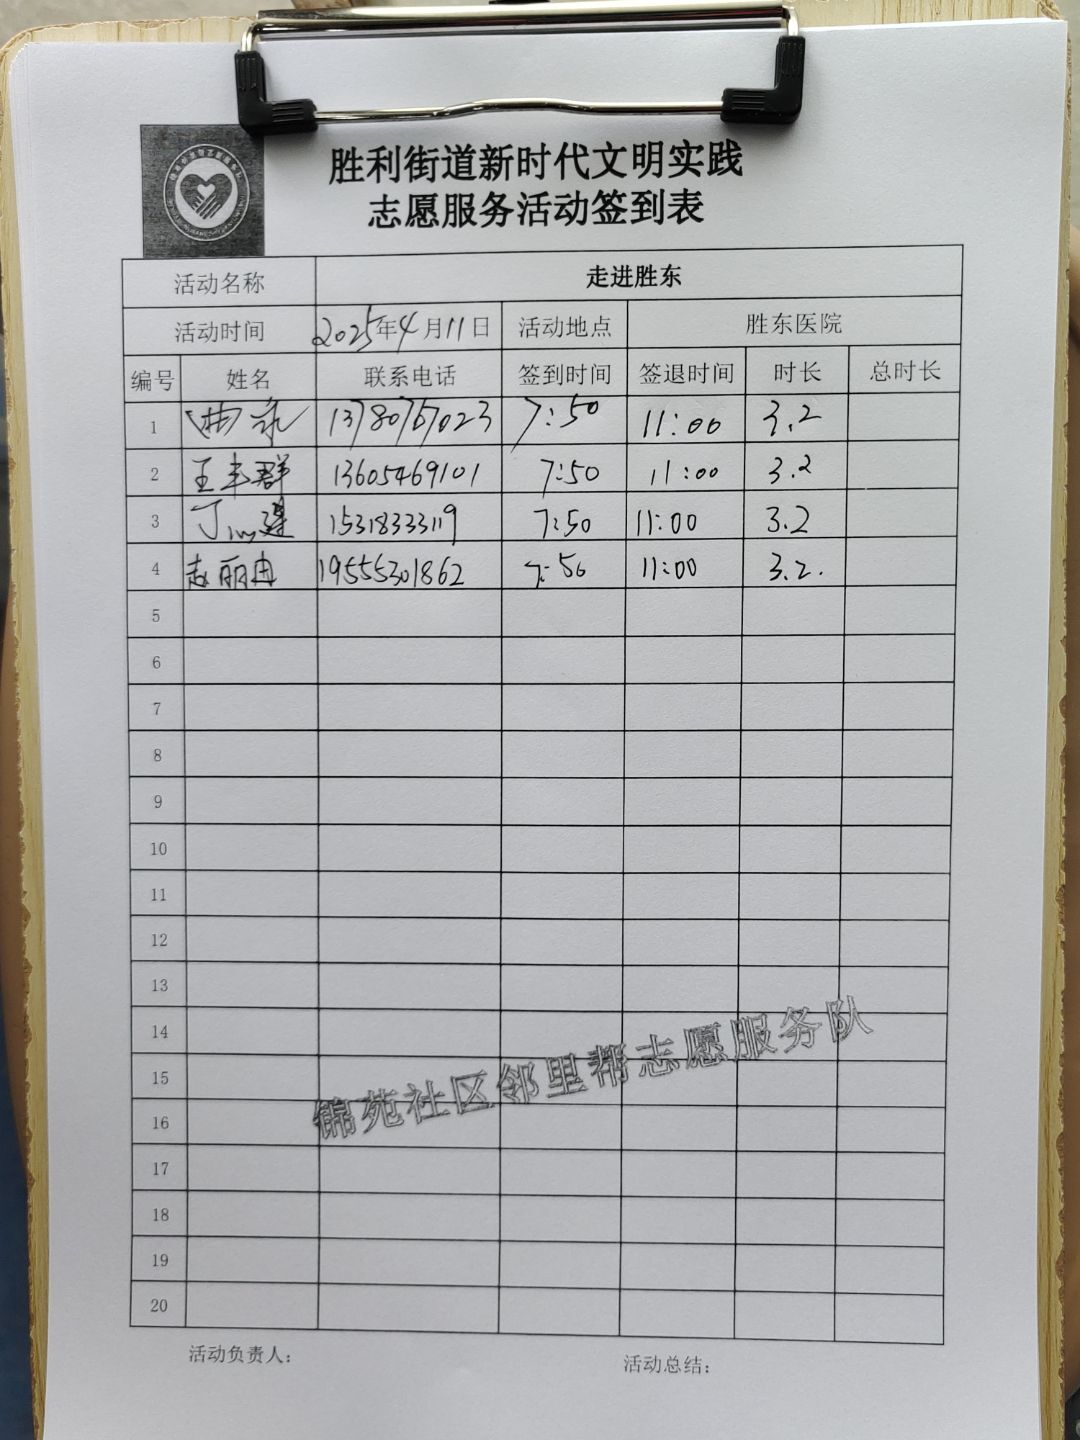 胜利街道新时代文明实践
志愿服务活动签到表
活动名称 走进胜东
活动时间 2025年4月11日 活动地点 胜东医院
编号 姓名 联系电话 签到时间 签退时间 时长 总时长
1 7:50 11:00 3.2
2 王丰群 13605469101 7:50 11:00 3.2
3 15318333119 7:50 11:00 3.2
4 赵丽冉 19555301862 7:50 11:00 3.2.
5
6
7
8
9
10
11
12
13
14
15
16
17
18
19
20
锦苑社区邻里帮志愿服务队
活动负责人： 活动总结：